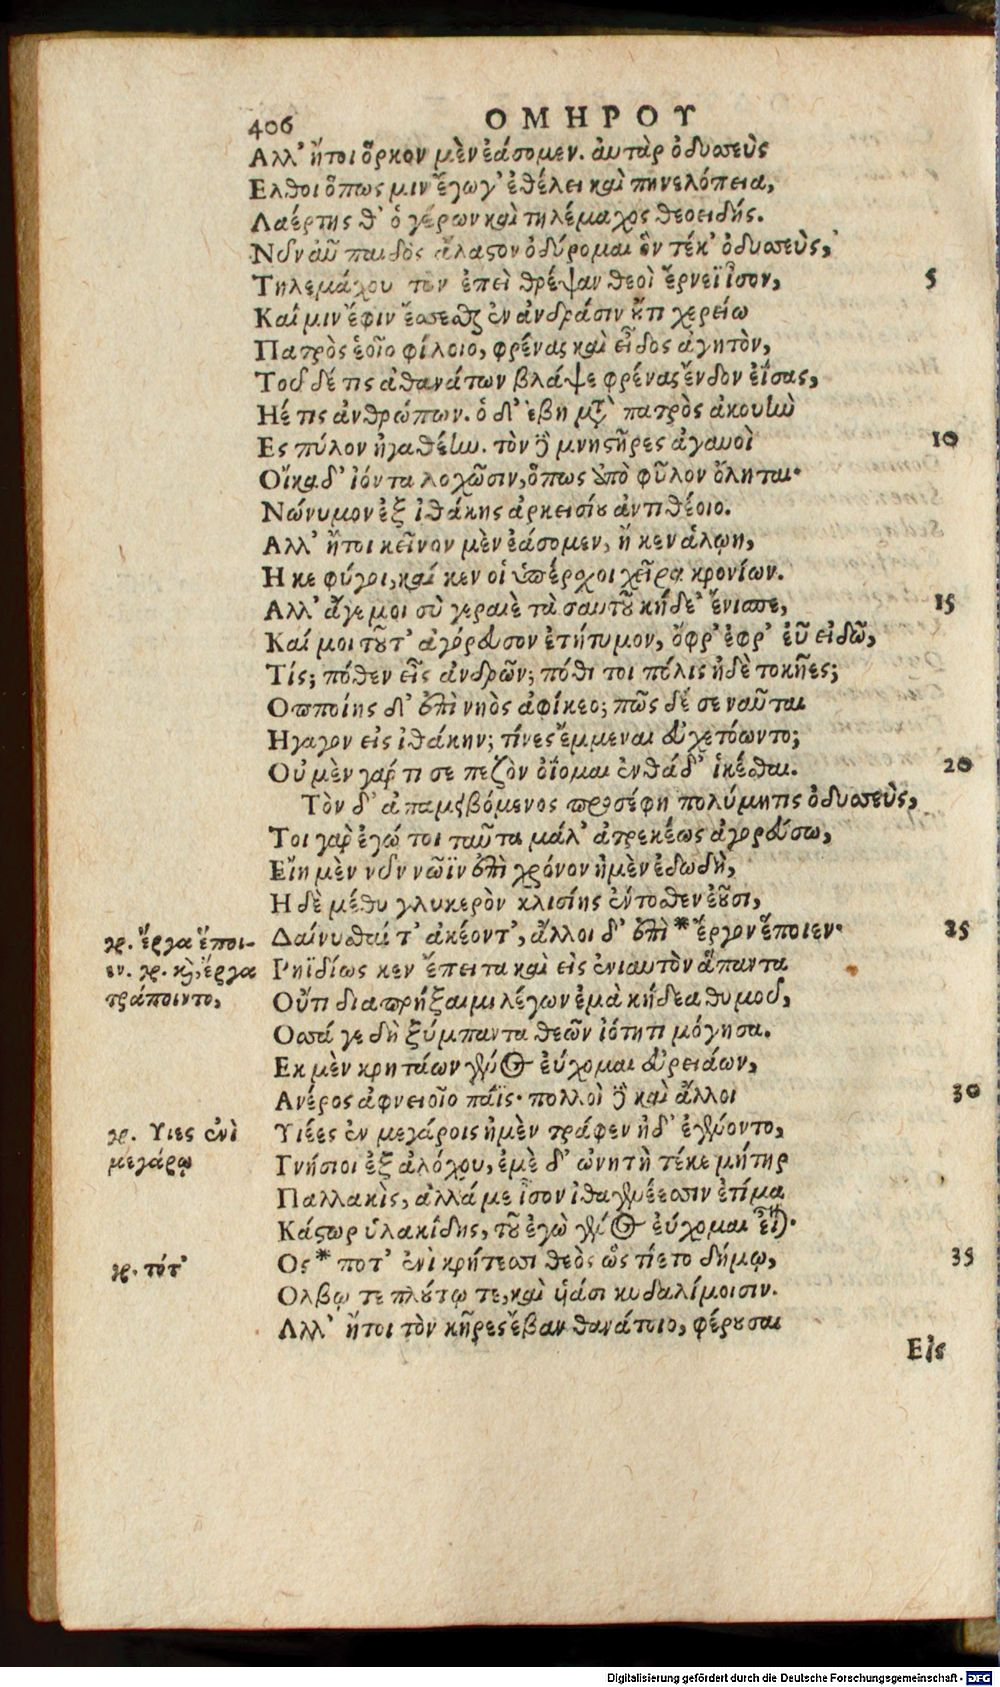 406 ΟΜΗΡΟΥ
Αλλ' ἤτοι ὅρκον μὲν ἐάσομεν. αὐτὰρ ὀδυσσεὺς
Ελθοι ὅπως μιν ἔγωγ' ἐθέλει καὶ πηνελόπεια,
Λαέρτης θ' ὁ γέρων καὶ τηλέμαχος θεοειδής.
Νῦν αὖ παιδὸς ἄλαστον ὀδύρομαι ὃν τέκ' ὀδυσσεὺς,
Τηλεμάχου τὸν ἐπεὶ θρέψαν θεοὶ ἔρνεϊ ἶσον, 5
Καί μιν ἔφιν ἔσσεσθαι ἐν ἀνδράσιν οὔτι χερείω
Πατρὸς ἑοῖο φίλοιο, φρένας καὶ εἶδος ἀγητὸν,
Τοῦ δέ τις ἀθανάτων βλάψε φρένας ἔνδον ἐΐσας,
Ηέ τις ἀνθρώπων. ὁ δ' ἔβη μετὰ πατρὸς ἀκουὴν
Ες πύλον ἠγαθέην. τὸν δὲ μνηστῆρες ἀγαυοὶ 10
Οἴκαδ' ἰόντα λοχῶσιν, ὅπως ἀπὸ φῦλον ὄληται·
Νώνυμον ἐξ ἰθάκης ἀρκεισίου ἀντιθέοιο.
Αλλ' ἤτοι κεῖνον μὲν ἐάσομεν, ἤ κεν ἁλῴη,
Η κε φύγοι, καί κεν οἱ ὑπέρσχοι χεῖρα κρονίων.
Αλλ' ἄγε μοι σὺ γεραιὲ τὰ σαυτοῦ κήδε' ἔνισπε, 15
Καί μοι τοῦτ' ἀγόρευσον ἐτήτυμον, ὄφρ' ἐφρ' ἐῦ εἰδῶ,
Τίς; πόθεν εἶς ἀνδρῶν; πόθι τοι πόλις ἠδὲ τοκῆες;
Οπποίης δ' ἐπὶ νηὸς ἀφίκεο; πῶς δέ σε ναῦται
Ηγαγον εἰς ἰθάκην; τίνες ἔμμεναι εὐχετόωντο;
Οὐ μὲν γάρ τι σε πεζὸν ὀΐομαι ἐνθάδ' ἱκέσθαι. 20
Τὸν δ' ἀπαμειβόμενος προσέφη πολύμητις ὀδυσσεὺς,
Τοι γὰρ ἐγώ τοι ταῦτα μάλ' ἀτρεκέως ἀγορεύσω,
Εἴη μὲν νῦν νῶϊν ἐπὶ χρόνον ἠμὲν ἐδωδὴ,
Η δὲ μέθυ γλυκερὸν κλισίης ἔντοσθεν ἐοῦσι,
Δαίνυσθαί τ' ἀκέοντ', ἄλλοι δ' ἐπὶ * ἔργον ἕποιεν· 25
γρ. ἔργα ἕποι-
εν. γρ. καὶ, ἔργα
τράποιντο,
Ρηϊδίως κεν ἔπειτα καὶ εἰς ἐνιαυτὸν ἅπαντα
Οὔτι διαπρήξαιμι λέγων ἐμὰ κήδεα θυμοῦ,
Οσσά γε δὴ ξύμπαντα θεῶν ἰότητι μόγησα.
Εκ μὲν κρητάων γένος εὔχομαι εὐρειάων,
Ανέρος ἀφνειοῖο πάϊς· πολλοὶ δὲ καὶ ἄλλοι 30
Υιέες ἐν μεγάροις ἠμὲν τράφεν ἠδ' ἐγένοντο,
γρ. Υιες ἐνὶ
μεγάρῳ
Γνήσιοι ἐξ ἀλόχου, ἐμὲ δ' ὠνητὴ τέκε μήτηρ
Παλλακὶς, ἀλλά με ἶσον ἰθαγενέεσσιν ἐτίμα
Κάστωρ ὑλακίδης, τοῦ ἐγὼ γένος εὔχομαι εἶναι.
Ος * ποτ' ἐνὶ κρήτεσσι θεὸς ὣς τίετο δήμῳ, 35
γρ. τότ'
Ολβῳ τε πλούτῳ τε, καὶ υἱάσι κυδαλίμοισιν.
Αλλ' ἤτοι τὸν κῆρες ἔβαν θανάτοιο, φέρουσαι
Εἰς
Digitalisierung gefördert durch die Deutsche Forschungsgemeinschaft - DFG